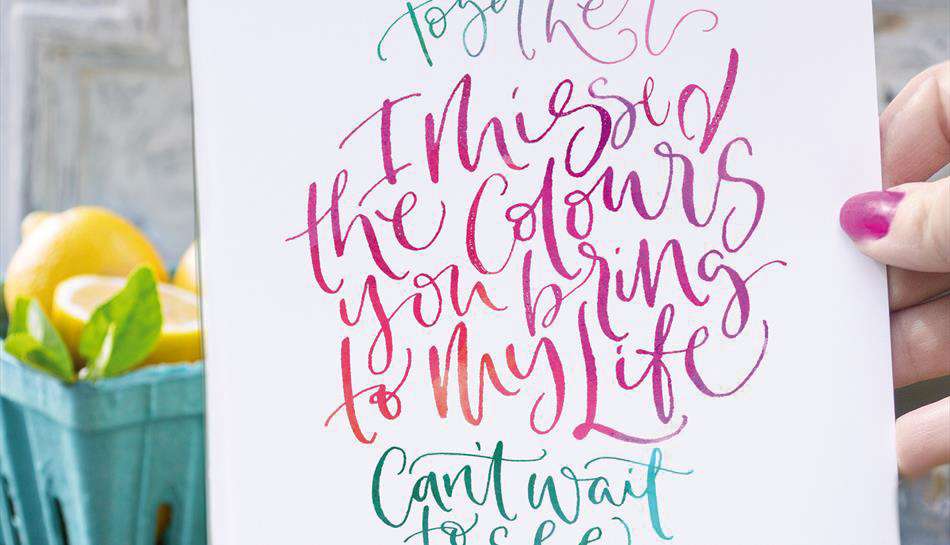 together
I missed
the Colours
you bring
to My Life
Can't wait
to see